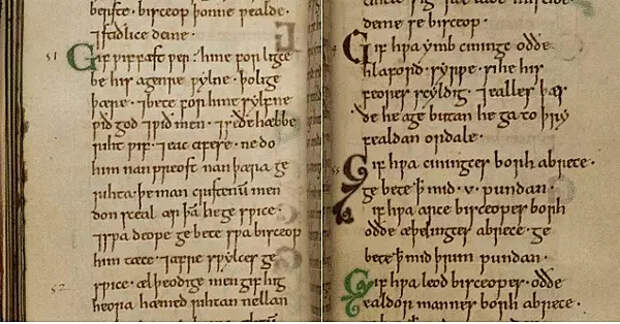 berste · bisceop þonne ƿealde ·
⁊ stiðlice deme ·
51
Gif ƿiffæst ƿer : hine forlicge
be his agenre ƿylne · þolige
þære · ⁊ bete for hine sylfne
ƿið god ⁊ ƿið men · ⁊ seðe hæbbe
riht ƿif · ⁊ eac cefese · ne do
him nan preost nan þæra ge
rihta · þe man cristenū men
don sceal ær þā hege sƿice ·
⁊ sƿa deope ge bete sƿa bisceop
him tæce · ⁊ æfre sƿylces ge
sƿice · ælþeodige men gif hig
52
heora hæmed rihtan nellan
deme se bisceop ·
Gif hƿa ymb cininge oððe
hlaford · syrƿe · si he his
feores scyldig · ⁊ ealles þæs
ðe he age buttan he ga to þry
fealdan ordale ·
Gif hƿa cininges borh abrece ·
ge bete þ̄ mid · v · pundan ·
Gif hƿa arce bisceopes borh
oððe æþelinges abrece · ge
bete þ̄ mid þrim pundan ·
Gif hƿa leod bisceopes · oððe
ealdor mannes borh abrece ·